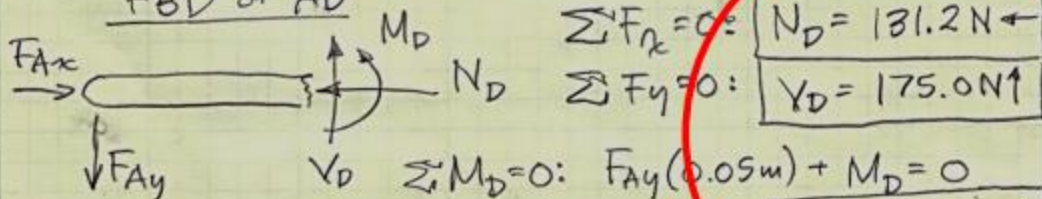 FBD of AD
F_Ax
M_D
N_D
V_D
F_Ay
ΣF_x=0: N_D = 131.2N←
ΣF_y=0: V_D = 175.0N↑
ΣM_D=0: F_Ay(0.05m) + M_D = 0